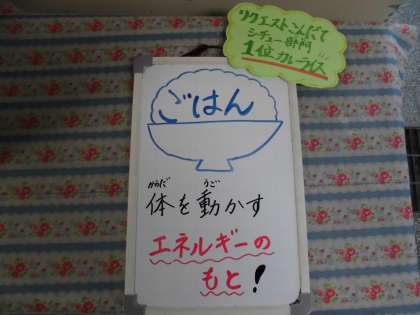 リクエストこんだて
シチュー部門
1位カレーライス
ごはん
からだ うご
体を動かす
エネルギーの
もと!